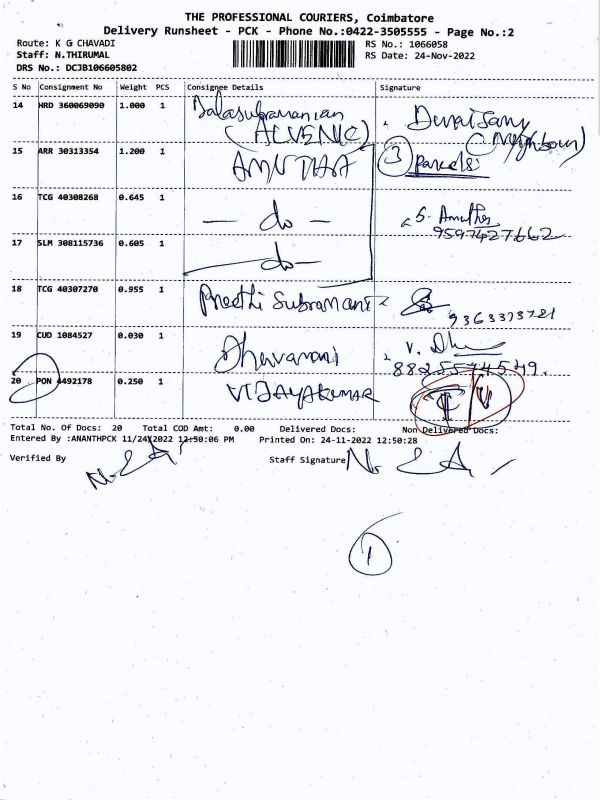 THE PROFESSIONAL COURIERS, Coimbatore
Delivery Runsheet - PCK - Phone No.:0422-3505555 - Page No.:2
Route: K G CHAVADI RS No.: 1066058
Staff: N.THIRUMAL RS Date: 24-Nov-2022
DRS No.: DCJB106605802
S No Consignment No Weight PCS Consignee Details Signature
14 HRD 360069090 1.000 1 Balasubramanian (ALVENIC) Duraisamy (Neighbour)
15 ARR 30313354 1.200 1 AMUTHA 3 parcels
16 TCG 40308268 0.645 1 - do - S. Amutha
9597427662
17 SLM 308115736 0.605 1 - do -
18 TCG 40307270 0.955 1 Preethi Subramani 9363373721
19 CUD 1084527 0.030 1 Dhavamani V. 8825574549.
20 PON 4492178 0.250 1 VIJAYAKUMAR
Total No. Of Docs: 20 Total COD Amt: 0.00 Delivered Docs: Non Delivered Docs:
Entered By :ANANTHPCK 11/24/2022 12:50:06 PM Printed On: 24-11-2022 12:50:28
Verified By Staff Signature
1